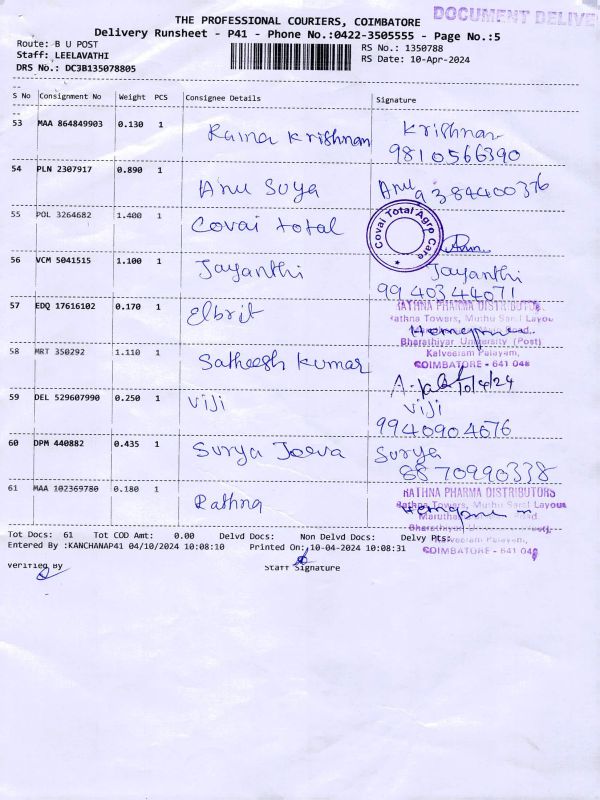 THE PROFESSIONAL COURIERS, COIMBATORE
DOCUMENT DELIVE
Delivery Runsheet - P41 - Phone No.:0422-3505555 - Page No.:5
Route: B U POST
RS No.: 1350788
Staff: LEELAVATHI
RS Date: 10-Apr-2024
DRS No.: DC3B135078805
S No Consignment No Weight PCS Consignee Details Signature
53 MAA 864849903 0.130 1
Rama Krishnan Krishnan
9810566390
54 PLN 2307917 0.890 1
Anu Suya Anu 9384400376
55 POL 3264682 1.400 1
Covai total
Covai Total Agro Care
56 VCM 5041515 1.100 1
Jayanthi Jayanthi
9940344071
57 EDQ 17616102 0.170 1
Elbrit
RATHNA PHARMA DISTRIBUTORS
Rathna Towers, Muthu Layou
Bharathiyar University (Post)
Kalveeram Palayam,
COIMBATORE - 641 046
58 MRT 350292 1.110 1
Satheesh Kumar
10/4/24
59 DEL 529607990 0.250 1
Viji Viji
9940904676
60 DPM 440882 0.435 1
Surya Jeeva Surya
8870990338
61 MAA 102369780 0.180 1
Rathna
RATHNA PHARMA DISTRIBUTORS
Rathna Towers, Muthu Layou
Kalveeram Palayam,
COIMBATORE - 641 046
Tot Docs: 61 Tot COD Amt: 0.00 Delvd Docs: Non Delvd Docs: Delvy Pts:
Entered By :KANCHANAP41 04/10/2024 10:08:10 Printed On:10-04-2024 10:08:31
Verified By Staff Signature